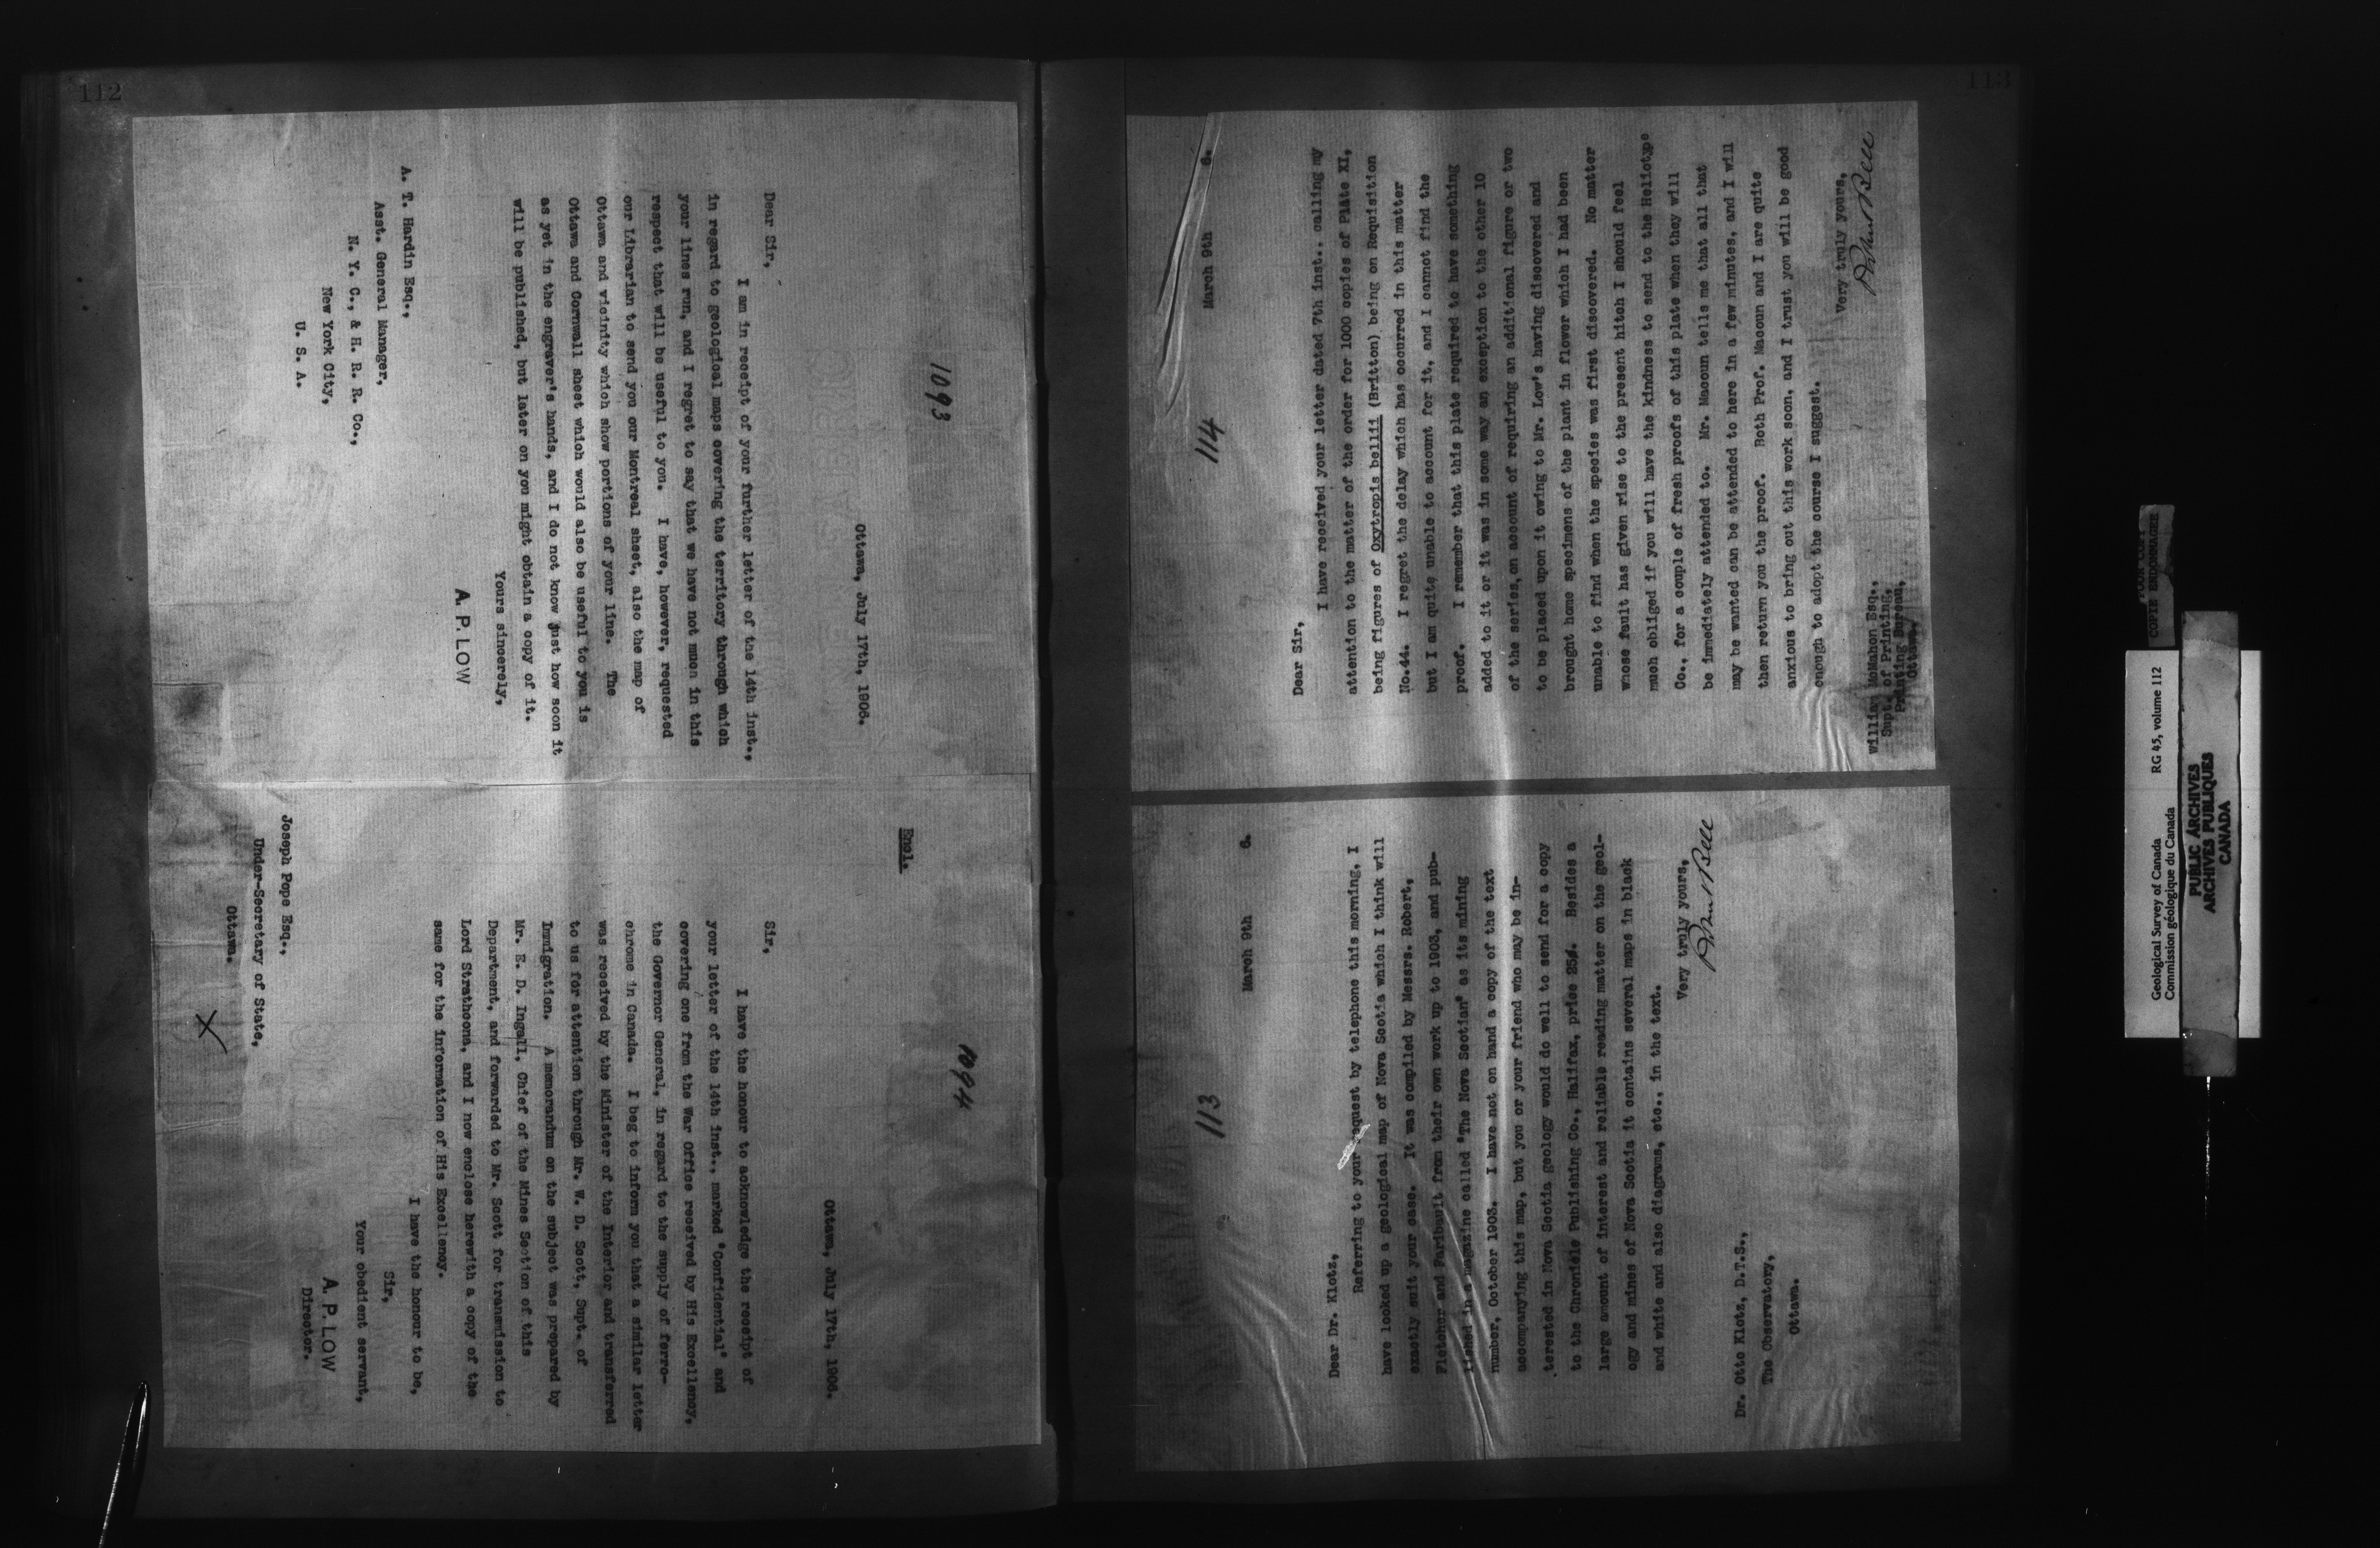 112
1093
Ottawa, July 17th, 1906.
Dear Sir,
I am in receipt of your further letter of the 14th inst.,
in regard to geological maps covering the territory through which
your lines run, and I regret to say that we have not much in this
respect that will be useful to you. I have, however, requested
our Librarian to send you our Montreal sheet, also the map of
Ottawa and vicinity which show portions of your line. The
Ottawa and Cornwall sheet which would also be useful to you is
as yet in the engraver's hands, and I do not know just how soon it
will be published, but later on you might obtain a copy of it.
Yours sincerely,
A. P. LOW
A. T. Hardin Esq.,
Asst. General Manager,
N. Y. C., & H. R. R. Co.,
New York City,
U. S. A.
1094
Encl.
Ottawa, July 17th, 1906.
Sir,
I have the honour to acknowledge the receipt of
your letter of the 14th inst., marked "Confidential" and
covering one from the War Office received by His Excellency,
the Governor General, in regard to the supply of ferro-
chrome in Canada. I beg to inform you that a similar letter
was received by the Minister of the Interior and transferred
to us for attention through Mr. W. D. Scott, Supt. of
Immigration. A memorandum on the subject was prepared by
Mr. E. D. Ingall, Chief of the Mines Section of this
Department, and forwarded to Mr. Scott for transmission to
Lord Strathcona, and I now enclose herewith a copy of the
same for the information of His Excellency.
I have the honour to be,
Sir,
Your obedient servant,
A. P. LOW
Director.
Joseph Pope Esq.,
Under-Secretary of State,
Ottawa.
X
113
114
March 9th 6.
Dear Sir,
I have received your letter dated 7th inst., calling my
attention to the matter of the order for 1000 copies of Plate XI,
being figures of Oxytropis bellii (Britton) being on Requisition
No.44. I regret the delay which has occurred in this matter
but I am quite unable to account for it, and I cannot find the
proof. I remember that this plate required to have something
added to it or it was in some way an exception to the other 10
of the series, on account of requiring an additional figure or two
to be placed upon it owing to Mr. Low's having discovered and
brought home specimens of the plant in flower which I had been
unable to find when the species was first discovered. No matter
whose fault has given rise to the present hitch I should feel
much obliged if you will have the kindness to send to the Heliotype
Co., for a couple of fresh proofs of this plate when they will
be immediately attended to. Mr. Macoun tells me that all that
may be wanted can be attended to here in a few minutes, and I will
then return you the proof. Both Prof. Macoun and I are quite
anxious to bring out this work soon, and I trust you will be good
enough to adopt the course I suggest.
Very truly yours,
Robert Bell
William McMahon Esq.,
Supt. of Printing,
Printing Bureau,
Ottawa.
113
March 9th 6.
Dear Dr. Klotz,
Referring to your request by telephone this morning, I
have looked up a geological map of Nova Scotia which I think will
exactly suit your case. It was compiled by Messrs. Robert,
Fletcher and Faribault from their own work up to 1903, and pub-
lished in a magazine called "The Nova Scotian" as its mining
number, October 1903. I have not on hand a copy of the text
accompanying this map, but you or your friend who may be in-
terested in Nova Scotia geology would do well to send for a copy
to the Chronicle Publishing Co., Halifax, price 25¢. Besides a
large amount of interest and reliable reading matter on the geol-
ogy and mines of Nova Scotia it contains several maps in black
and white and also diagrams, etc., in the text.
Very truly yours,
Robert Bell
Dr. Otto Klotz, D.T.S.,
The Observatory,
Ottawa.
POOR COPY
COPIE ENDOMMAGEE
Geological Survey of Canada RG 45, volume 112
Commission géologique du Canada
PUBLIC ARCHIVES
ARCHIVES PUBLIQUES
CANADA